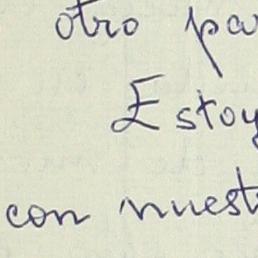 otro pa
Estoy
con nuest